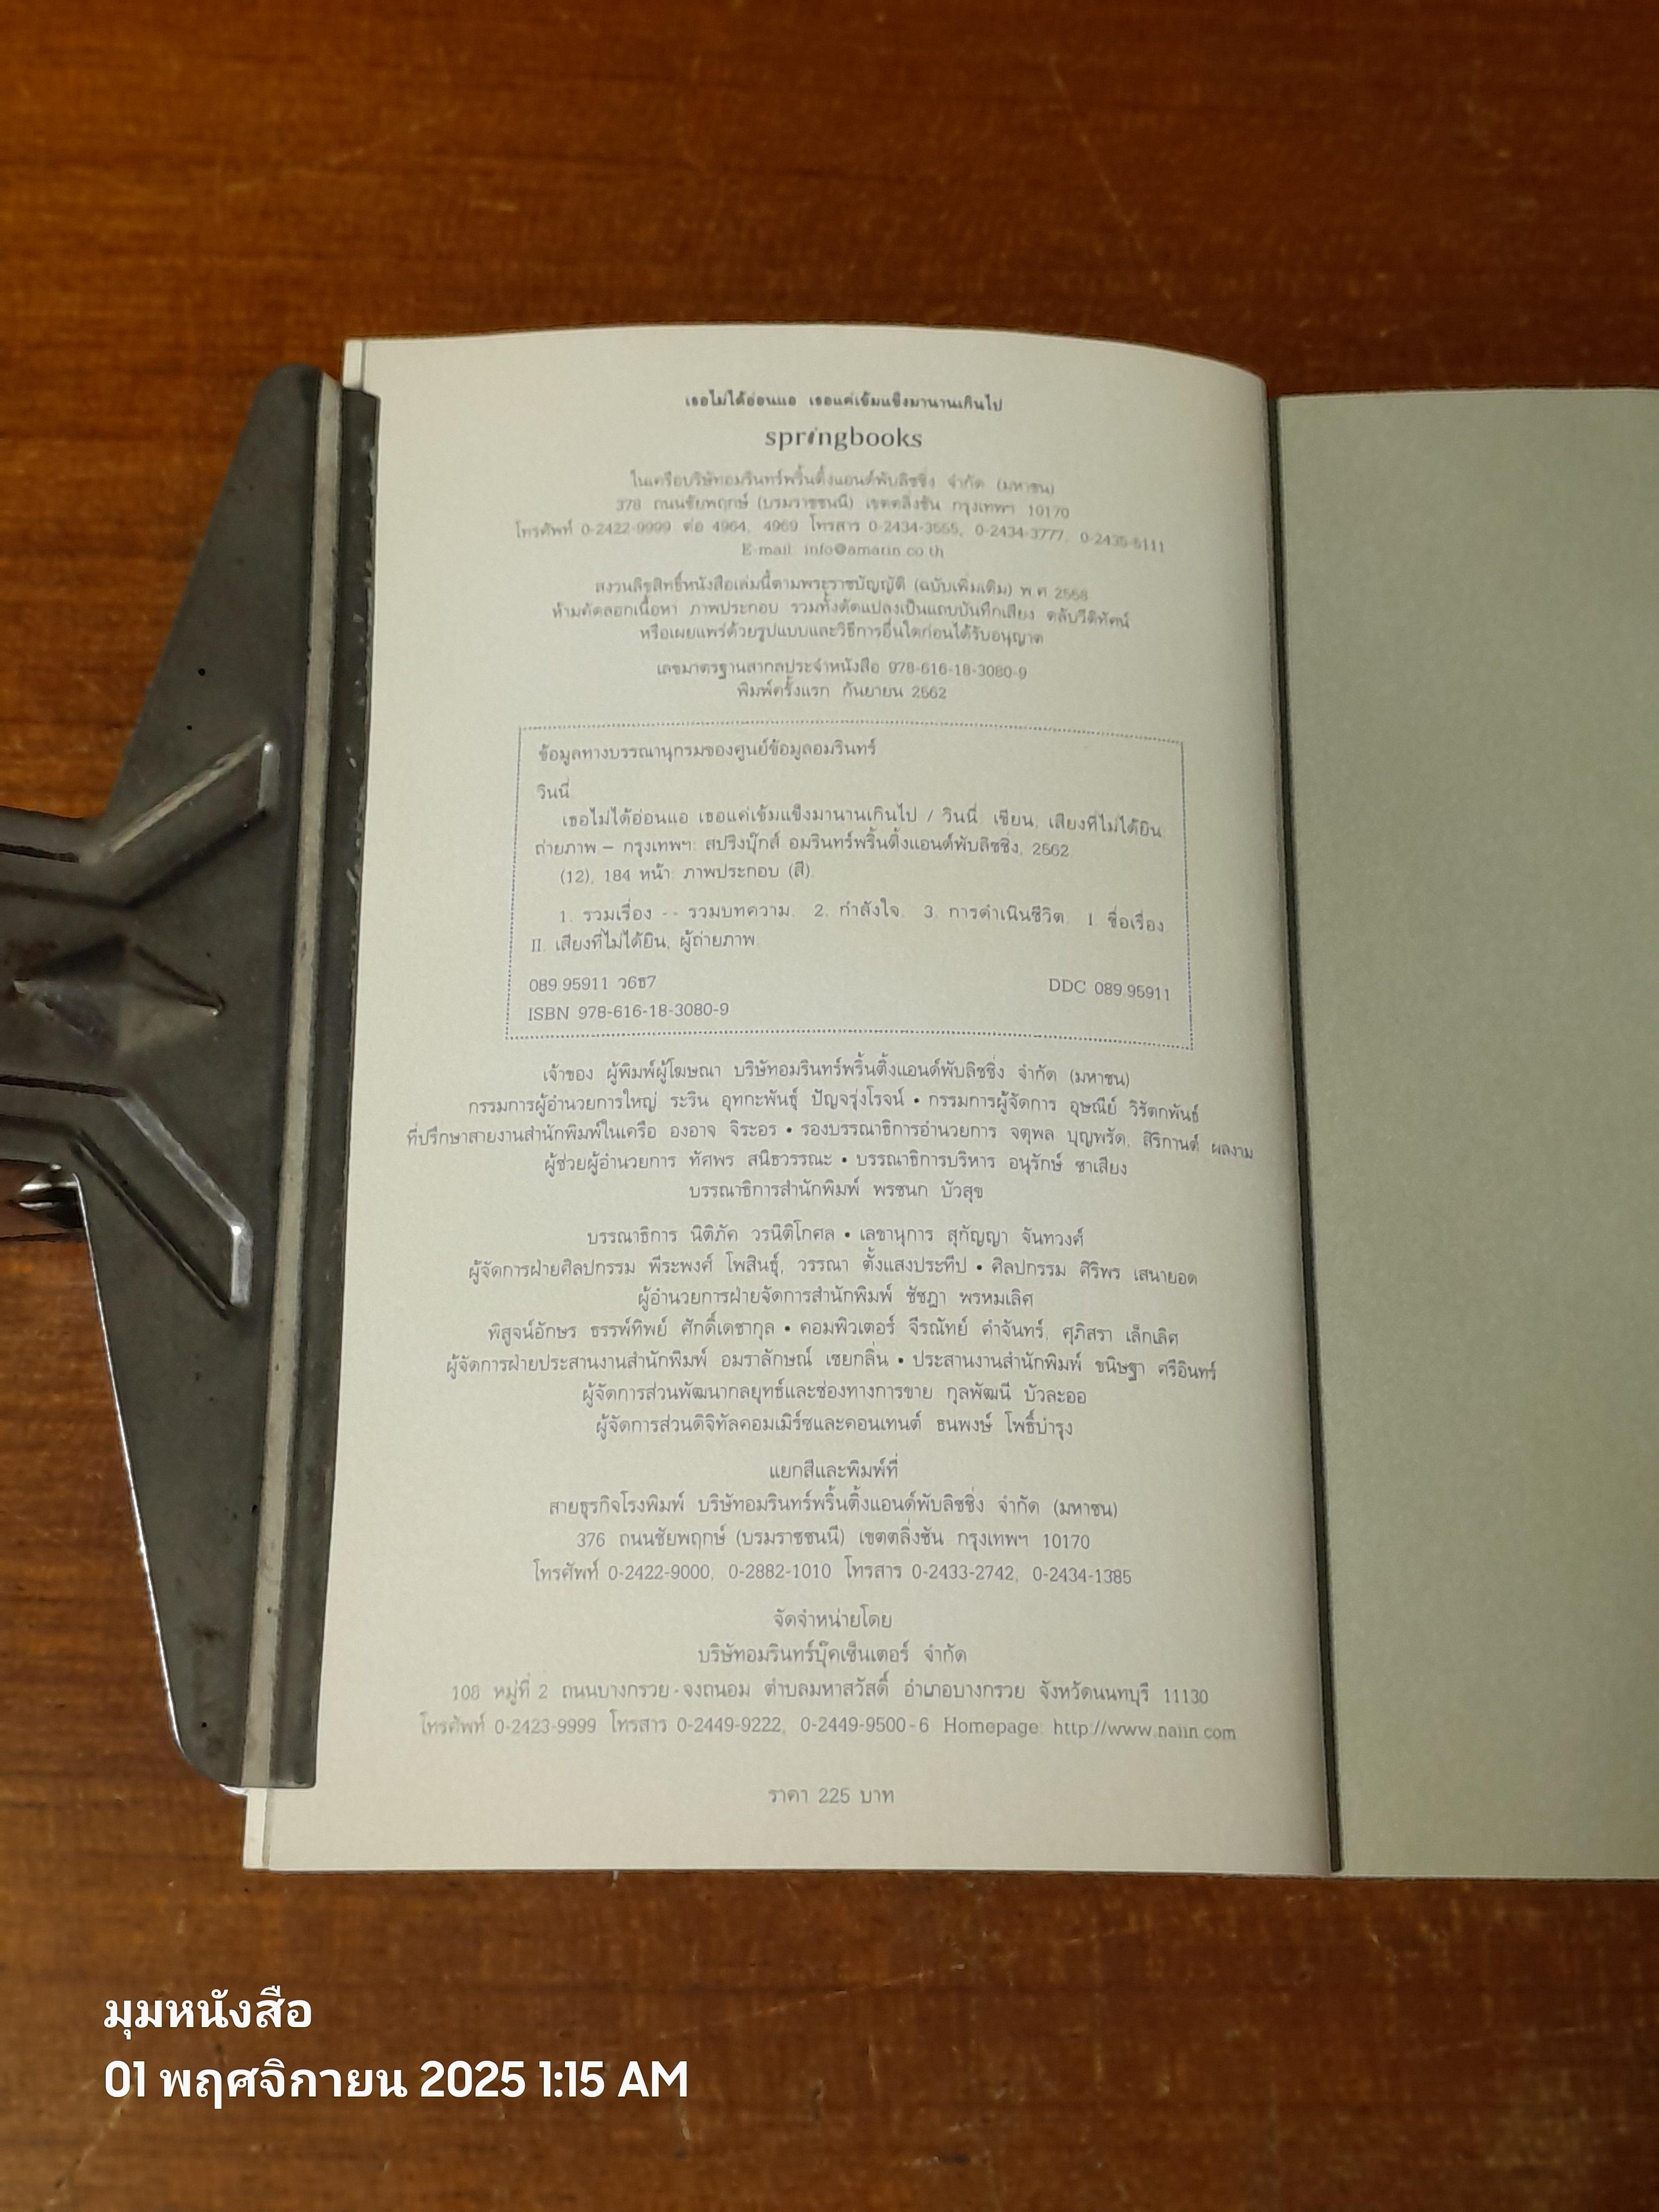 เธอไม่ได้อ่อนแอ เธอแค่เข้มแข็งมานานเกินไป
springbooks
ในเครือบริษัทอมรินทร์พริ้นติ้งแอนด์พับลิชชิ่ง จำกัด (มหาชน)
378 ถนนชัยพฤกษ์ (บรมราชชนนี) เขตตลิ่งชัน กรุงเทพฯ 10170
โทรศัพท์ 0-2422-9999 ต่อ 4964, 4969 โทรสาร 0-2434-3555, 0-2434-3777, 0-2435-5111
E-mail: info@amarin.co.th
สงวนลิขสิทธิ์หนังสือเล่มนี้ตามพระราชบัญญัติ (ฉบับเพิ่มเติม) พ.ศ. 2558
ห้ามคัดลอกเนื้อหา ภาพประกอบ รวมทั้งดัดแปลงเป็นแถบบันทึกเสียง ตลับวีดิทัศน์
หรือเผยแพร่ด้วยรูปแบบและวิธีการอื่นใดก่อนได้รับอนุญาต
เลขมาตรฐานสากลประจำหนังสือ 978-616-18-3080-9
พิมพ์ครั้งแรก กันยายน 2562
ข้อมูลทางบรรณานุกรมของศูนย์ข้อมูลอมรินทร์
วินนี่.
เธอไม่ได้อ่อนแอ เธอแค่เข้มแข็งมานานเกินไป / วินนี่, เขียน, เสียงที่ไม่ได้ยิน,
ถ่ายภาพ.– กรุงเทพฯ: สปริงบุ๊กส์ อมรินทร์พริ้นติ้งแอนด์พับลิชชิ่ง, 2562.
(12), 184 หน้า: ภาพประกอบ (สี).
1. รวมเรื่อง -- รวมบทความ. 2. กำลังใจ. 3. การดำเนินชีวิต. I. ชื่อเรื่อง
II. เสียงที่ไม่ได้ยิน, ผู้ถ่ายภาพ.
089.95911 ว6ธ7 DDC 089.95911
ISBN 978-616-18-3080-9
เจ้าของ ผู้พิมพ์ผู้โฆษณา บริษัทอมรินทร์พริ้นติ้งแอนด์พับลิชชิ่ง จำกัด (มหาชน)
กรรมการผู้อำนวยการใหญ่ ระริน อุทกะพันธุ์ ปัญจรุ่งโรจน์ • กรรมการผู้จัดการ อุษณีย์ วิรัตกพันธ์
ที่ปรึกษาสายงานสำนักพิมพ์ในเครือ องอาจ จิระอร • รองบรรณาธิการอำนวยการ จตุพล บุญพรัด, สิริกานต์ ผลงาม
ผู้ช่วยผู้อำนวยการ ทัศพร สนิธวรรณะ • บรรณาธิการบริหาร อนุรักษ์ ชาเสียง
บรรณาธิการสำนักพิมพ์ พรชนก บัวสุข
บรรณาธิการ นิติภัค วรนิติโกศล • เลขานุการ สุกัญญา จันทวงศ์
ผู้จัดการฝ่ายศิลปกรรม พีระพงศ์ โพสินธุ์, วรรณา ตั้งแสงประทีป • ศิลปกรรม ศิริพร เสนายอด
ผู้อำนวยการฝ่ายจัดการสำนักพิมพ์ ชัชฎา พรหมเลิศ
พิสูจน์อักษร ธรรพ์ทิพย์ ศักดิ์เดชากุล • คอมพิวเตอร์ จีรณัทย์ คำจันทร์, ศุภิสรา เล็กเลิศ
ผู้จัดการฝ่ายประสานงานสำนักพิมพ์ อมราลักษณ์ เชยกลิ่น • ประสานงานสำนักพิมพ์ ขนิษฐา ศรีอินทร์
ผู้จัดการส่วนพัฒนากลยุทธ์และช่องทางการขาย กุลพัฒนี บัวละออ
ผู้จัดการส่วนดิจิทัลคอมเมิร์ซและคอนเทนต์ ธนพงษ์ โพธิ์บำรุง
แยกสีและพิมพ์ที่
สายธุรกิจโรงพิมพ์ บริษัทอมรินทร์พริ้นติ้งแอนด์พับลิชชิ่ง จำกัด (มหาชน)
376 ถนนชัยพฤกษ์ (บรมราชชนนี) เขตตลิ่งชัน กรุงเทพฯ 10170
โทรศัพท์ 0-2422-9000, 0-2882-1010 โทรสาร 0-2433-2742, 0-2434-1385
จัดจำหน่ายโดย
บริษัทอมรินทร์บุ๊คเซ็นเตอร์ จำกัด
108 หมู่ที่ 2 ถนนบางกรวย-จงถนอม ตำบลมหาสวัสดิ์ อำเภอบางกรวย จังหวัดนนทบุรี 11130
โทรศัพท์ 0-2423-9999 โทรสาร 0-2449-9222, 0-2449-9500-6 Homepage: http://www.naiin.com
ราคา 225 บาท
มุมหนังสือ
01 พฤศจิกายน 2025 1:15 AM